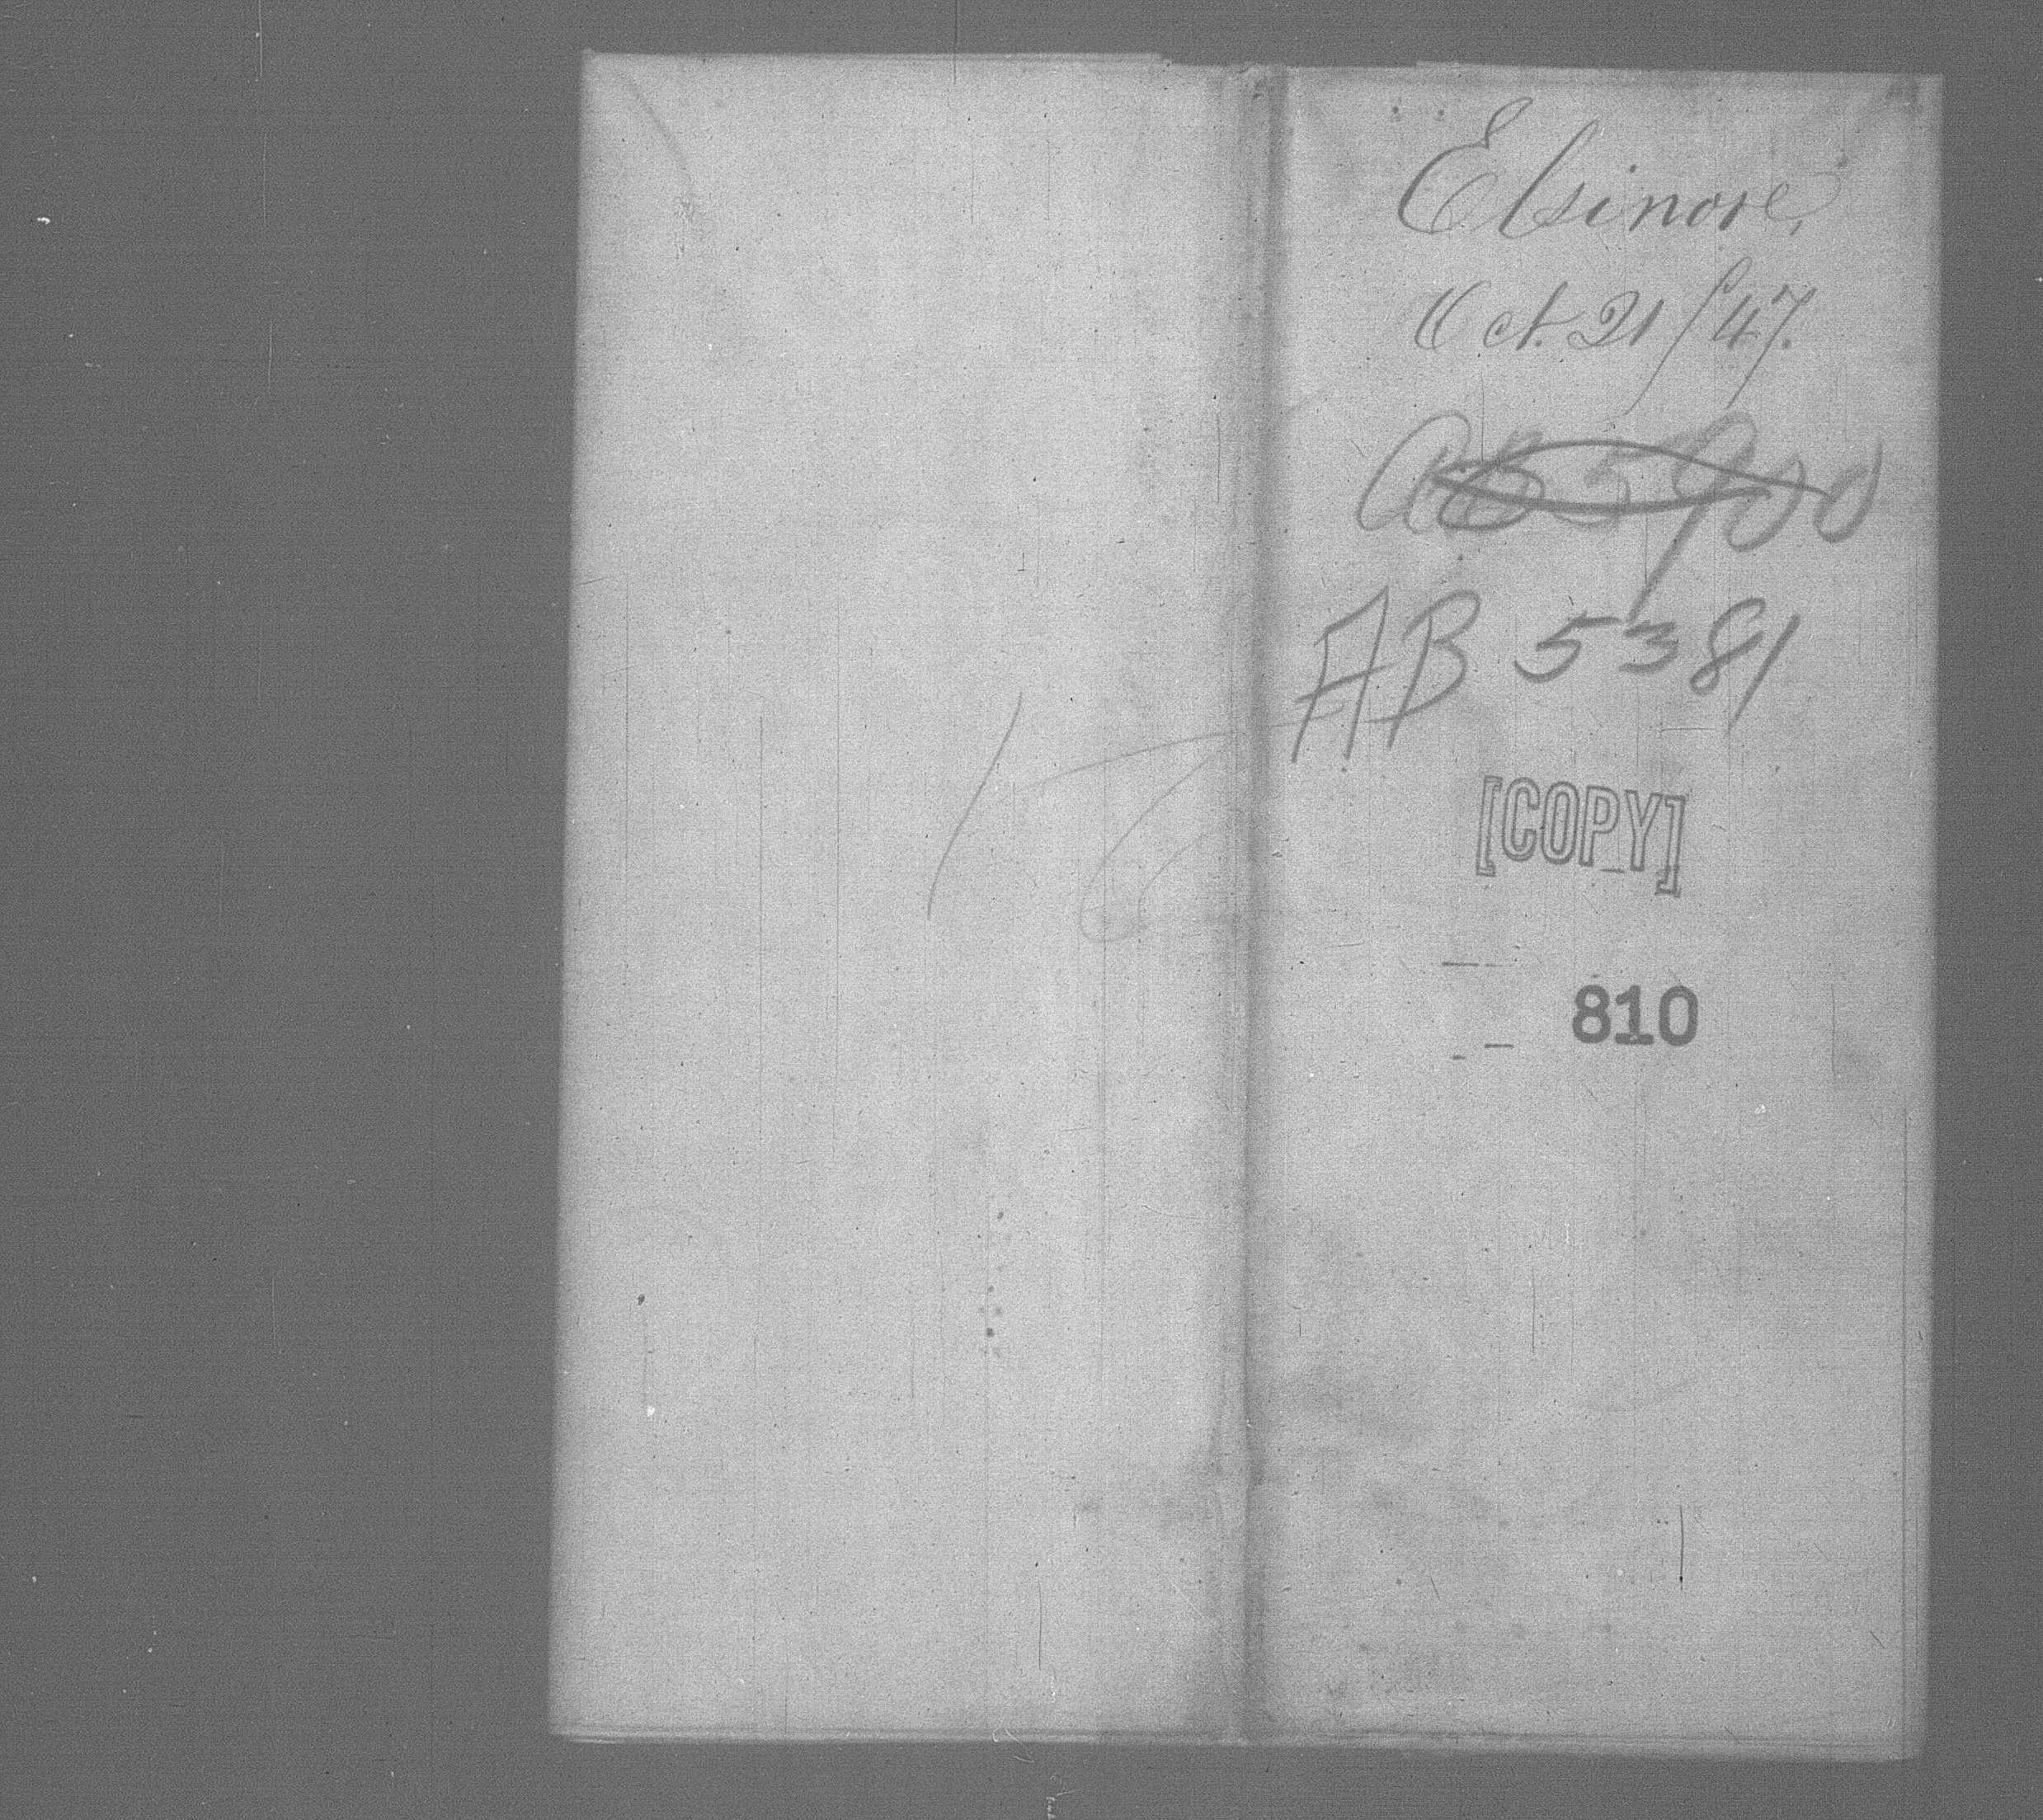 Elsinore,
Oct. 21/47.
AB 5900
AB 5381
[COPY]
810